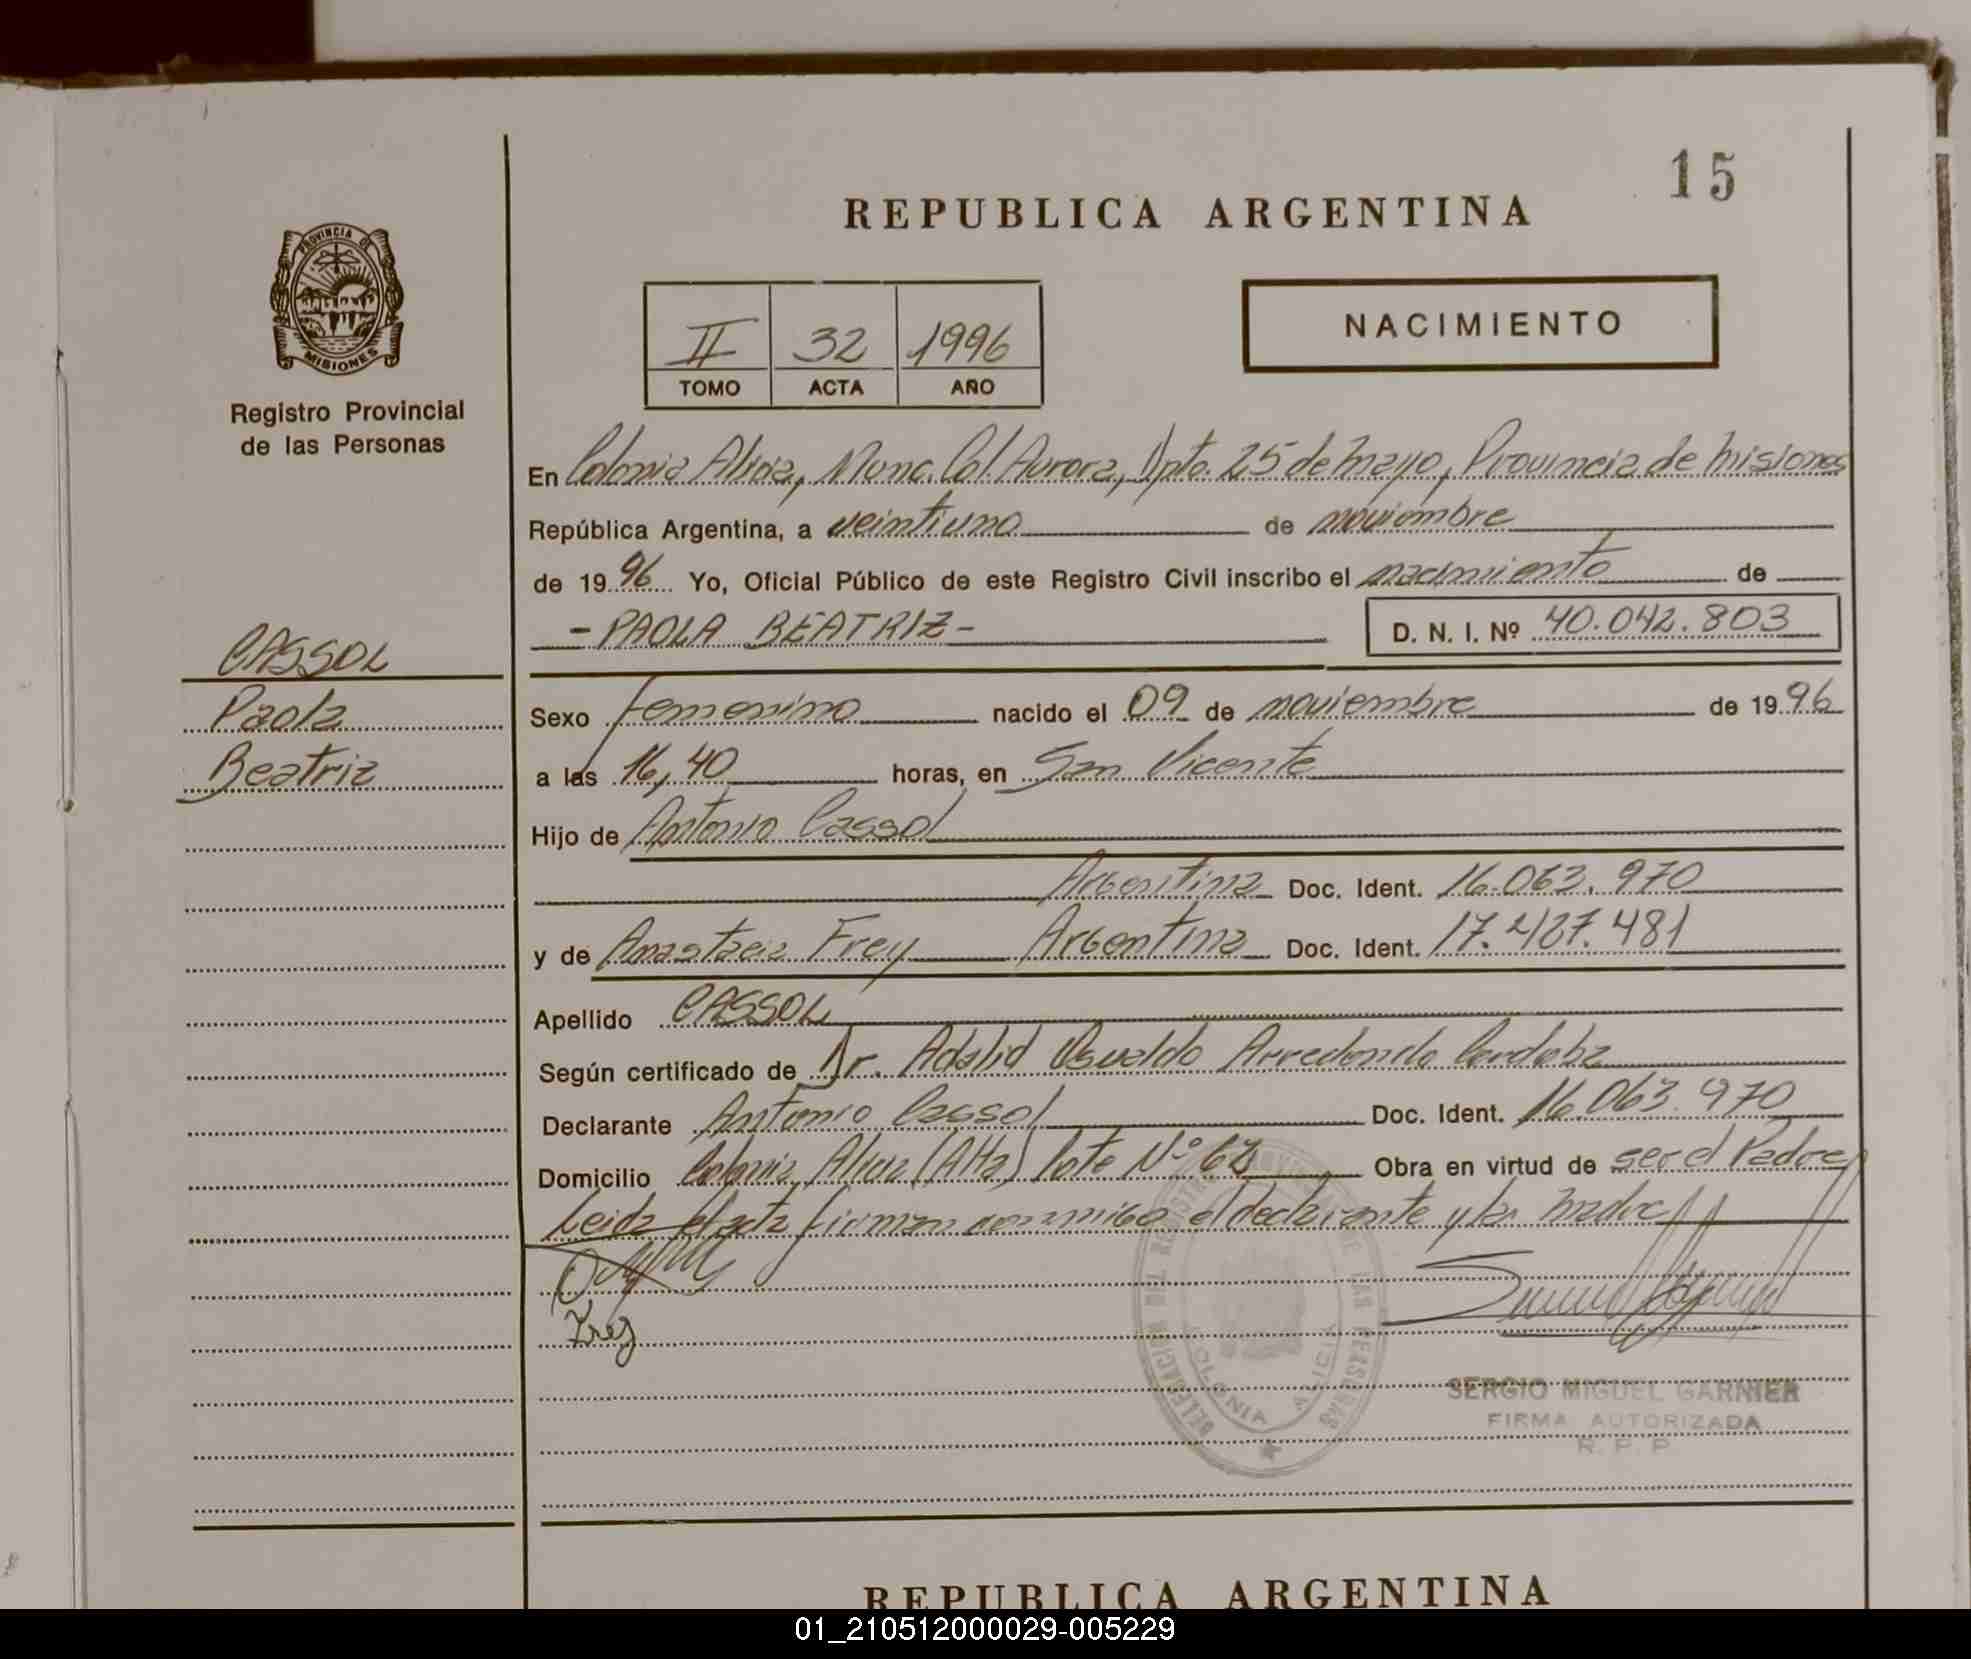 15
REPUBLICA ARGENTINA
PROVINCIA DE
MISIONES
Registro Provincial
de las Personas
II 32 1996
TOMO ACTA AÑO
NACIMIENTO
En Colonia Alicia, Munc. Col. Aurora, Dpto. 25 de mayo, Provincia de Misiones
República Argentina, a veintiuno de noviembre
de 1996 Yo, Oficial Público de este Registro Civil inscribo el nacimiento de
- PAOLA BEATRIZ - D. N. I. Nº 40.042.803
CASSOL
Paola
Beatriz
Sexo Femenino nacido el 09 de noviembre de 1996
a las 16,40 horas, en San Vicente
Hijo de Antonio Cassol
Argentina Doc. Ident. 16.063.970
y de Anastacia Frey Argentina Doc. Ident. 17.427.481
Apellido CASSOL
Según certificado de Dr. Adalid Osvaldo Arredondo Cordoba
Declarante Antonio Cassol Doc. Ident. 16.063.970
Domicilio Colonia Alicia (Alta) Lote Nº 62 Obra en virtud de ser el Padre
Leida el acta firman conmigo el declarante y la madre
Frey
DELEGACION DEL REGISTRO PROVINCIAL DE LAS PERSONAS
COLONIA ALICIA
SERGIO MIGUEL GARNIER
FIRMA AUTORIZADA
R. P. P
REPUBLICA ARGENTINA
01_210512000029-005229